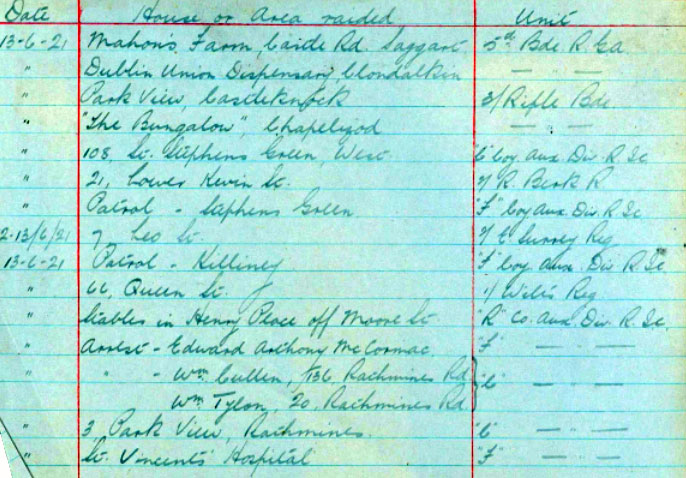 Date House or Area raided Unit
13-6-21 Mahon's Farm, Castle Rd. Saggart 5th Bde R.G.A
" Dublin Union Dispensary Clondalkin — " —
" Park View, Castleknock 3/ Rifle Bde
" "The Bungalow", Chapelizod — " —
" 108, St. Stephens Green, West. "C" Coy Aux. Div. R.I.C
" 21, Lower Kevin St. 1/ R. Berk R.
" Patrol - Stephens Green "F" Coy Aux. Div. R.I.C
2-13/6/21 7 Leo St. 1/ E Surrey Reg
13-6-21 Patrol - Killiney "F" Coy Aux. Div R.I.C
" 66, Queen St. 1/ Wilts Reg
" Stables in Henry Place off Moore St. "R" Co. Aux. Div. R.I.C
" Arrest - Edward Anthony McCormac. "F" — " —
" " - Wm Cullen, 136, Rathmines Rd "C" — " —
Wm Tylon, 20, Rathmines Rd
" 3, Park View, Rathmines. "C" — " —
" St. Vincents' Hospital "F" — " —